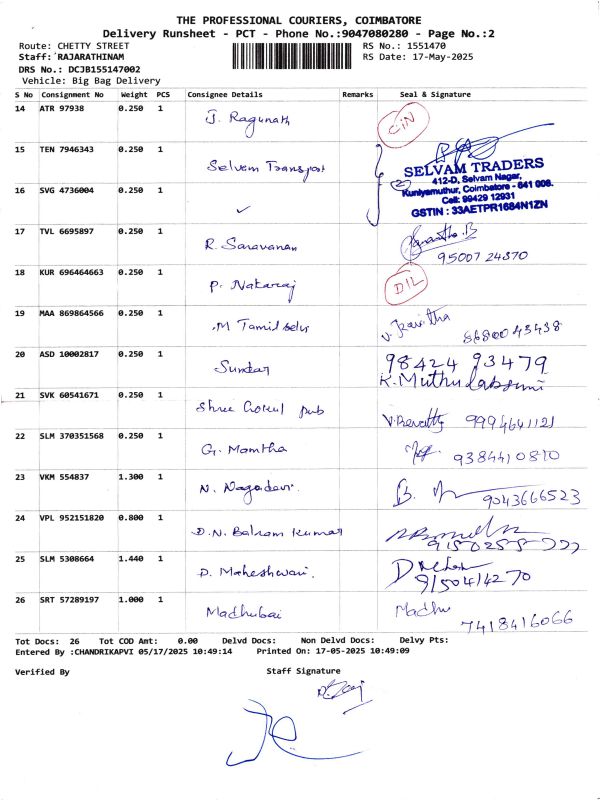 THE PROFESSIONAL COURIERS, COIMBATORE
Delivery Runsheet - PCT - Phone No.:9047080280 - Page No.:2
Route: CHETTY STREET
RS No.: 1551470
Staff: RAJARATHINAM
RS Date: 17-May-2025
DRS No.: DCJB155147002
Vehicle: Big Bag Delivery
S No Consignment No Weight PCS Consignee Details Remarks Seal & Signature
14 ATR 97938 0.250 1 J. Ragunath CIN
15 TEN 7946343 0.250 1 Selvam Transport
SELVAM TRADERS
412-D, Selvam Nagar,
Kuniyamuthur, Coimbatore - 641 008.
Cell: 99429 12931
GSTIN : 33AETPR1684N1ZN
(2)
16 SVG 4736004 0.250 1 ✓
17 TVL 6695897 0.250 1 R. Saravanan
95007 24370
18 KUR 696464663 0.250 1 P. Nataraj DIL
19 MAA 869864566 0.250 1 M Tamilselvi V. Kavitha 8680043438
20 ASD 10002817 0.250 1 Sundar 98424 93479
K. Muthulakshmi
21 SVK 60541671 0.250 1 Shree Gokul pub V. Revathy 9994641121
22 SLM 370351568 0.250 1 G. Mamtha 9384410810
23 VKM 554837 1.300 1 N. Nagadevi 9043666523
24 VPL 952151820 0.800 1 D.N. Balram Kumar
25 SLM 5308664 1.440 1 D. Maheshwari
9150414270
26 SRT 57289197 1.000 1 Madhubai Madhu 7418416066
Tot Docs: 26 Tot COD Amt: 0.00 Delvd Docs: Non Delvd Docs: Delvy Pts:
Entered By :CHANDRIKAPVI 05/17/2025 10:49:14 Printed On: 17-05-2025 10:49:09
Verified By Staff Signature